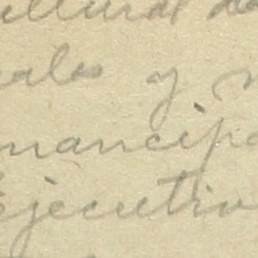 ultural de
ales y
mancipa
Ejecutiv